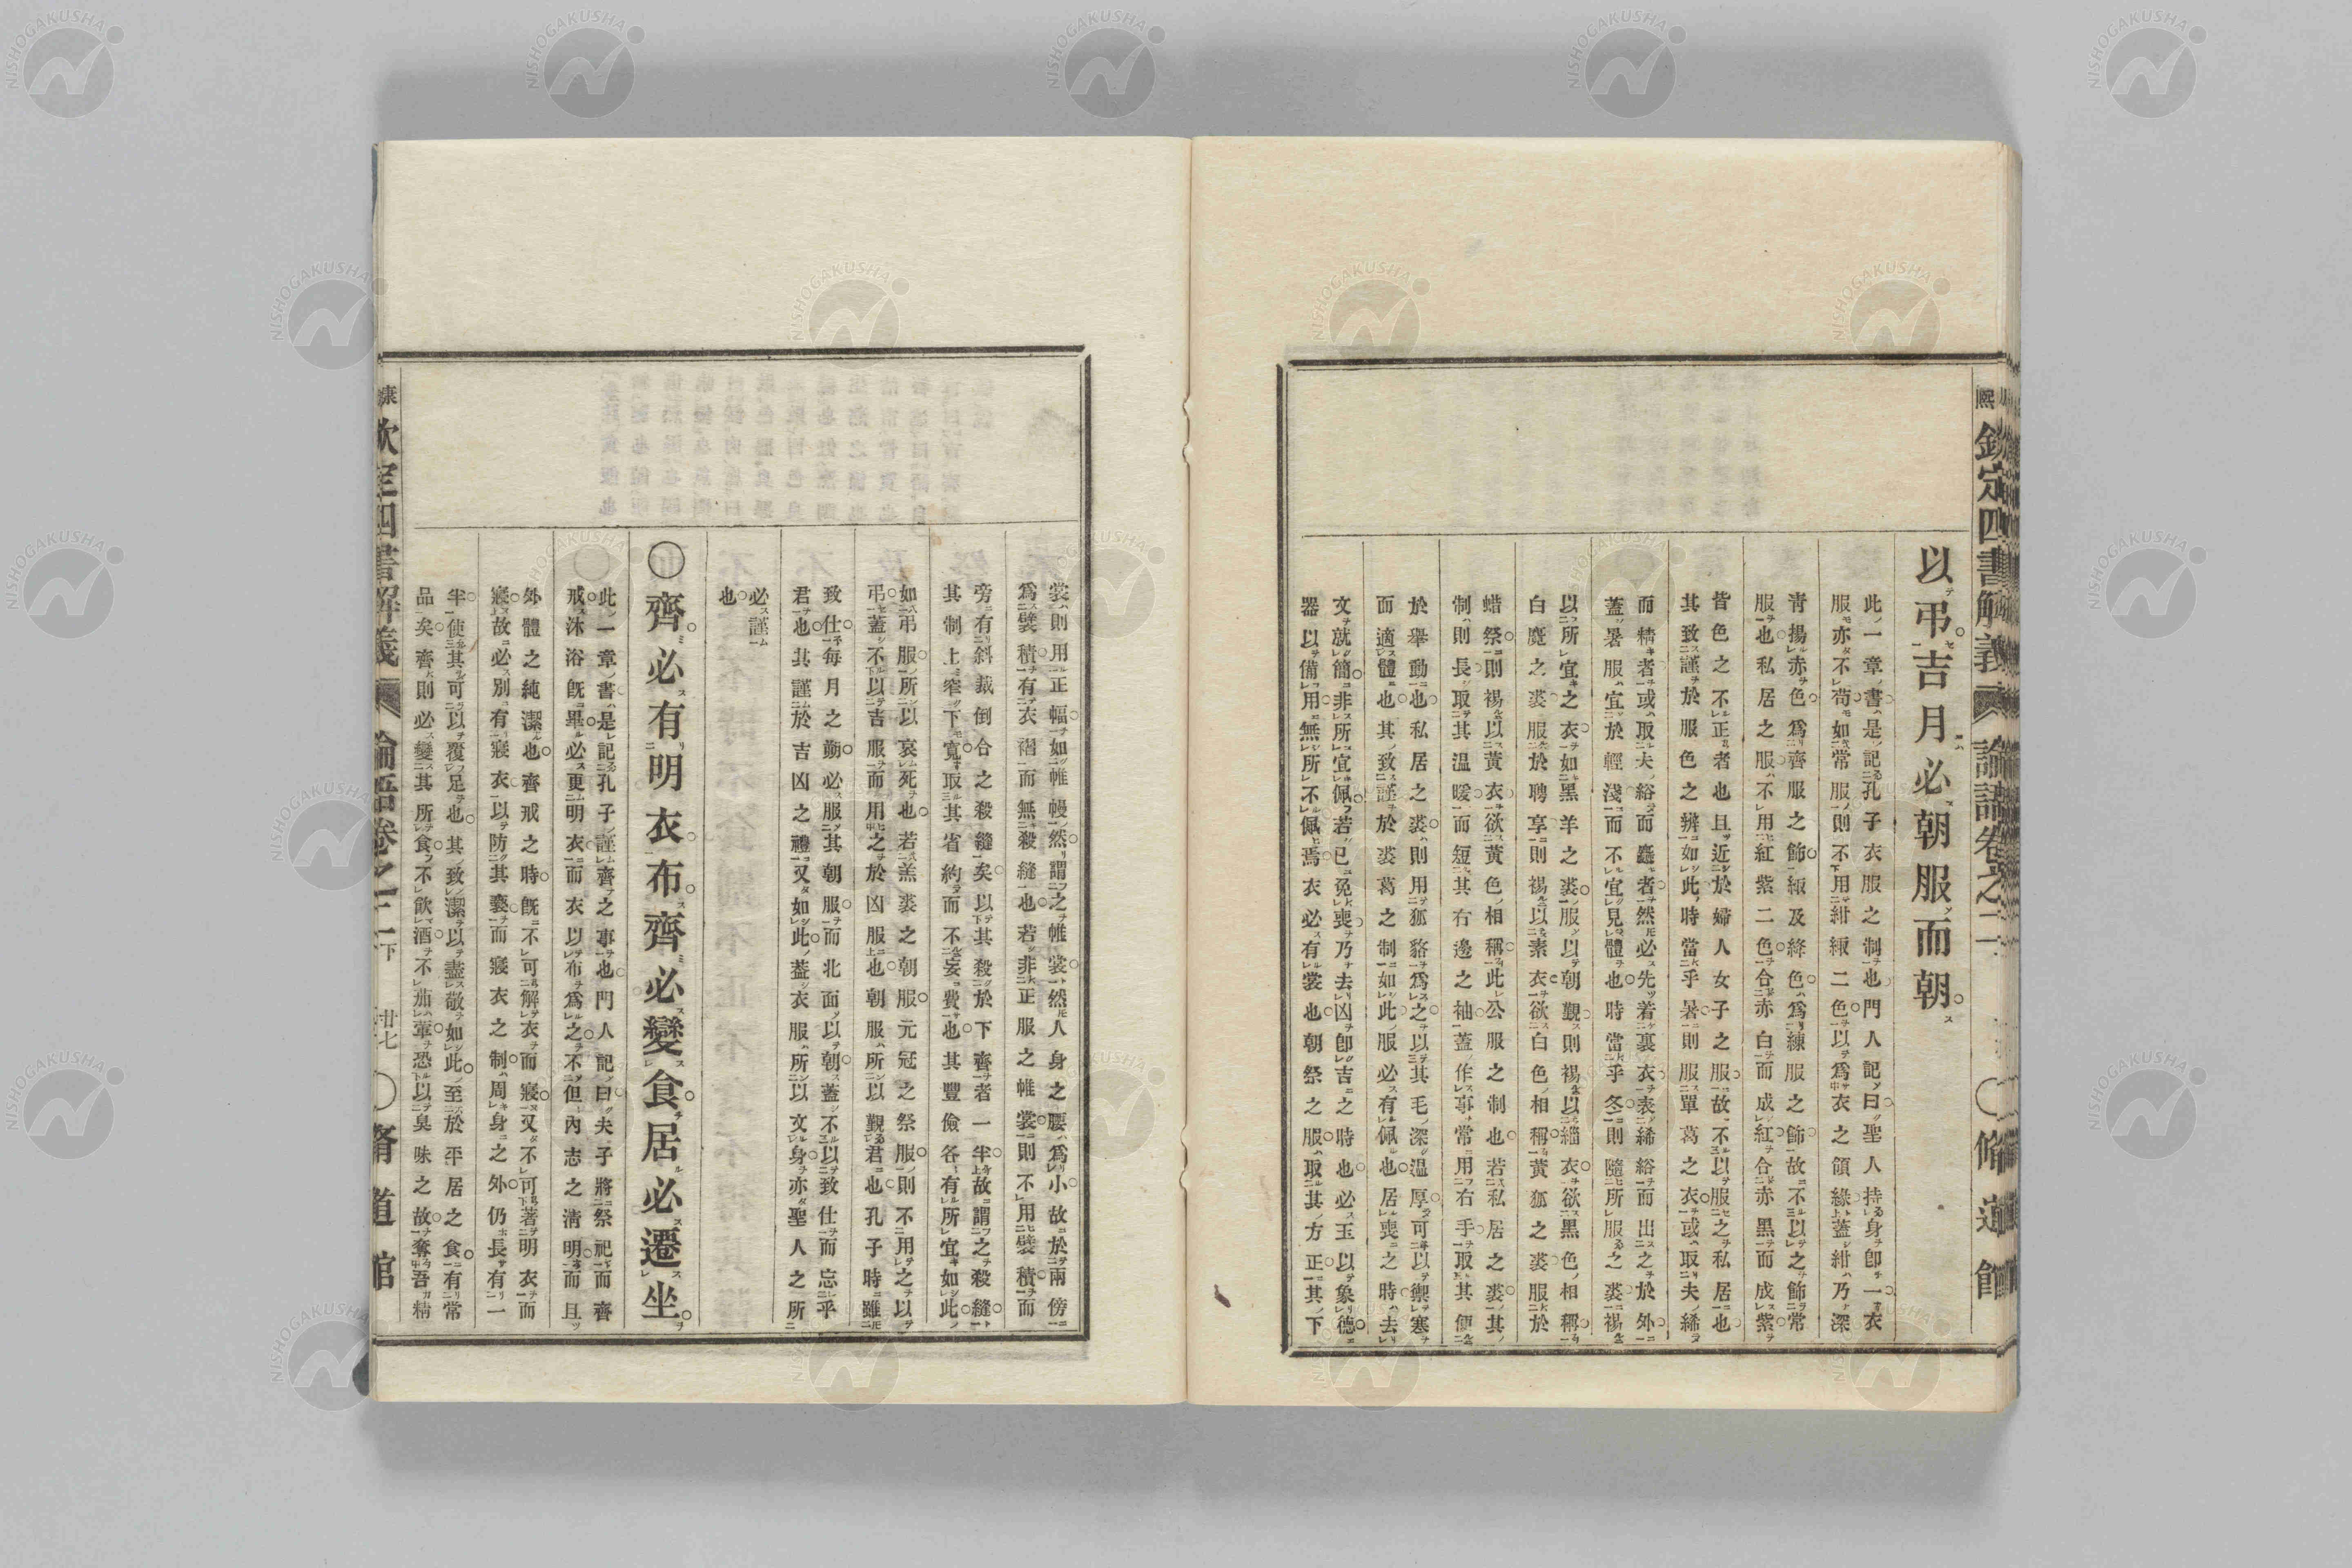 熙 欽定四書解義 論語卷之二 〇脩道館
以弔吉月必朝服而朝
此一章書是記孔子衣服之制也門人記曰聖人持身卽一衣
服亦不苟如常服則不用紺緅二色以爲衣之領緣蓋紺乃深
靑揚赤色爲齊服之飾緅及絳色爲練服之飾故不以之飾常
服也私居之服不用紅紫二色合赤白而成紅合赤黑而成紫
皆色之不正者也且近於婦人女子之服故不以服之私居也
其致謹於服色之辨如此時當乎暑則服單葛之衣或取夫絺
而精者或取夫綌而麤者然必先着裏衣表絺綌而出之於外
蓋暑服宜於輕淺而不宜見體也時當乎冬則隨所服之裘裼
以所宜之衣如黑羊之裘服以朝覲則裼以緇衣欲黑色相稱
白麑之裘服於聘享則裼以素衣欲白色相稱黃狐之裘服於
蜡祭則裼以黃衣欲黃色相稱此公服之制也若私居之裘其
制則長取其温暖而短其右邊之袖蓋作事常用右手取其便
於舉動也私居之裘則用狐貉爲之以其毛深温厚可以禦寒
而適體也其致謹於裘葛之制如此服必有佩也居喪之時去
文就簡非所宜佩若已免喪乃去凶卽吉之時也必玉以象德
器以備用無所不佩焉衣必有裳也朝祭之服取其方正其下
裳則用正幅如帷幔然謂之帷裳然人身之腰爲小故於兩傍
爲襞積有衣褶而無殺縫也若非正服之帷裳則不用襞積而
旁有斜裁倒合之殺縫矣以其殺於下齊者一半故謂之殺縫
其制上窄下寬取其省約而不妄費也其豐儉各有所宜如此
如弔服所以哀死也若羔裘之朝服元冠之祭服則不用之以
弔蓋不以吉服而用之於凶服也朝服所以覲君也孔子時雖
致仕每月之朔必服其朝服而北面以朝蓋不以致仕而忘乎
君也其謹於吉凶之禮又如此蓋衣服所以文身亦聖人之所
必謹
也
〇齊必有明衣布齊必變食居必遷坐
此一章書是記孔子謹齊之事也門人記曰夫子將祭祀而齊
戒沐浴旣畢必更明衣而衣以布爲之不但內志之淸明而且
外體之純潔也齊戒之時旣不可解衣而寢又不可著明衣而
寢故必別有寢衣以防其褻而寢衣之制周身之外仍長有一
半使其可以覆足也其致潔以盡敬如此至於平居之食有常
品矣齊則必變其所食不飮酒不茹葷恐以臭味之故奪吾精
康 欽定四書解義 論語卷之二下 廿七 〇脩道館
NISHOGAKUSHA